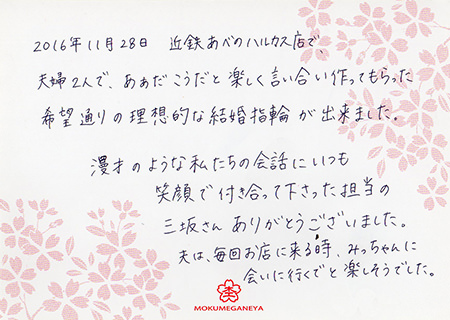 2016年11月28日 近鉄あべのハルカス店で、
夫婦2人で、あぁだこうだと楽しく言い合い作ってもらった
希望通りの理想的な結婚指輪が出来ました。
漫才のような私たちの会話にいつも
笑顔で付き合って下さった担当の
三坂さんありがとうございました。
夫は、毎回お店に来る時、みっちゃんに
会いに行くでと楽しそうでした。
MOKUMEGANEYA